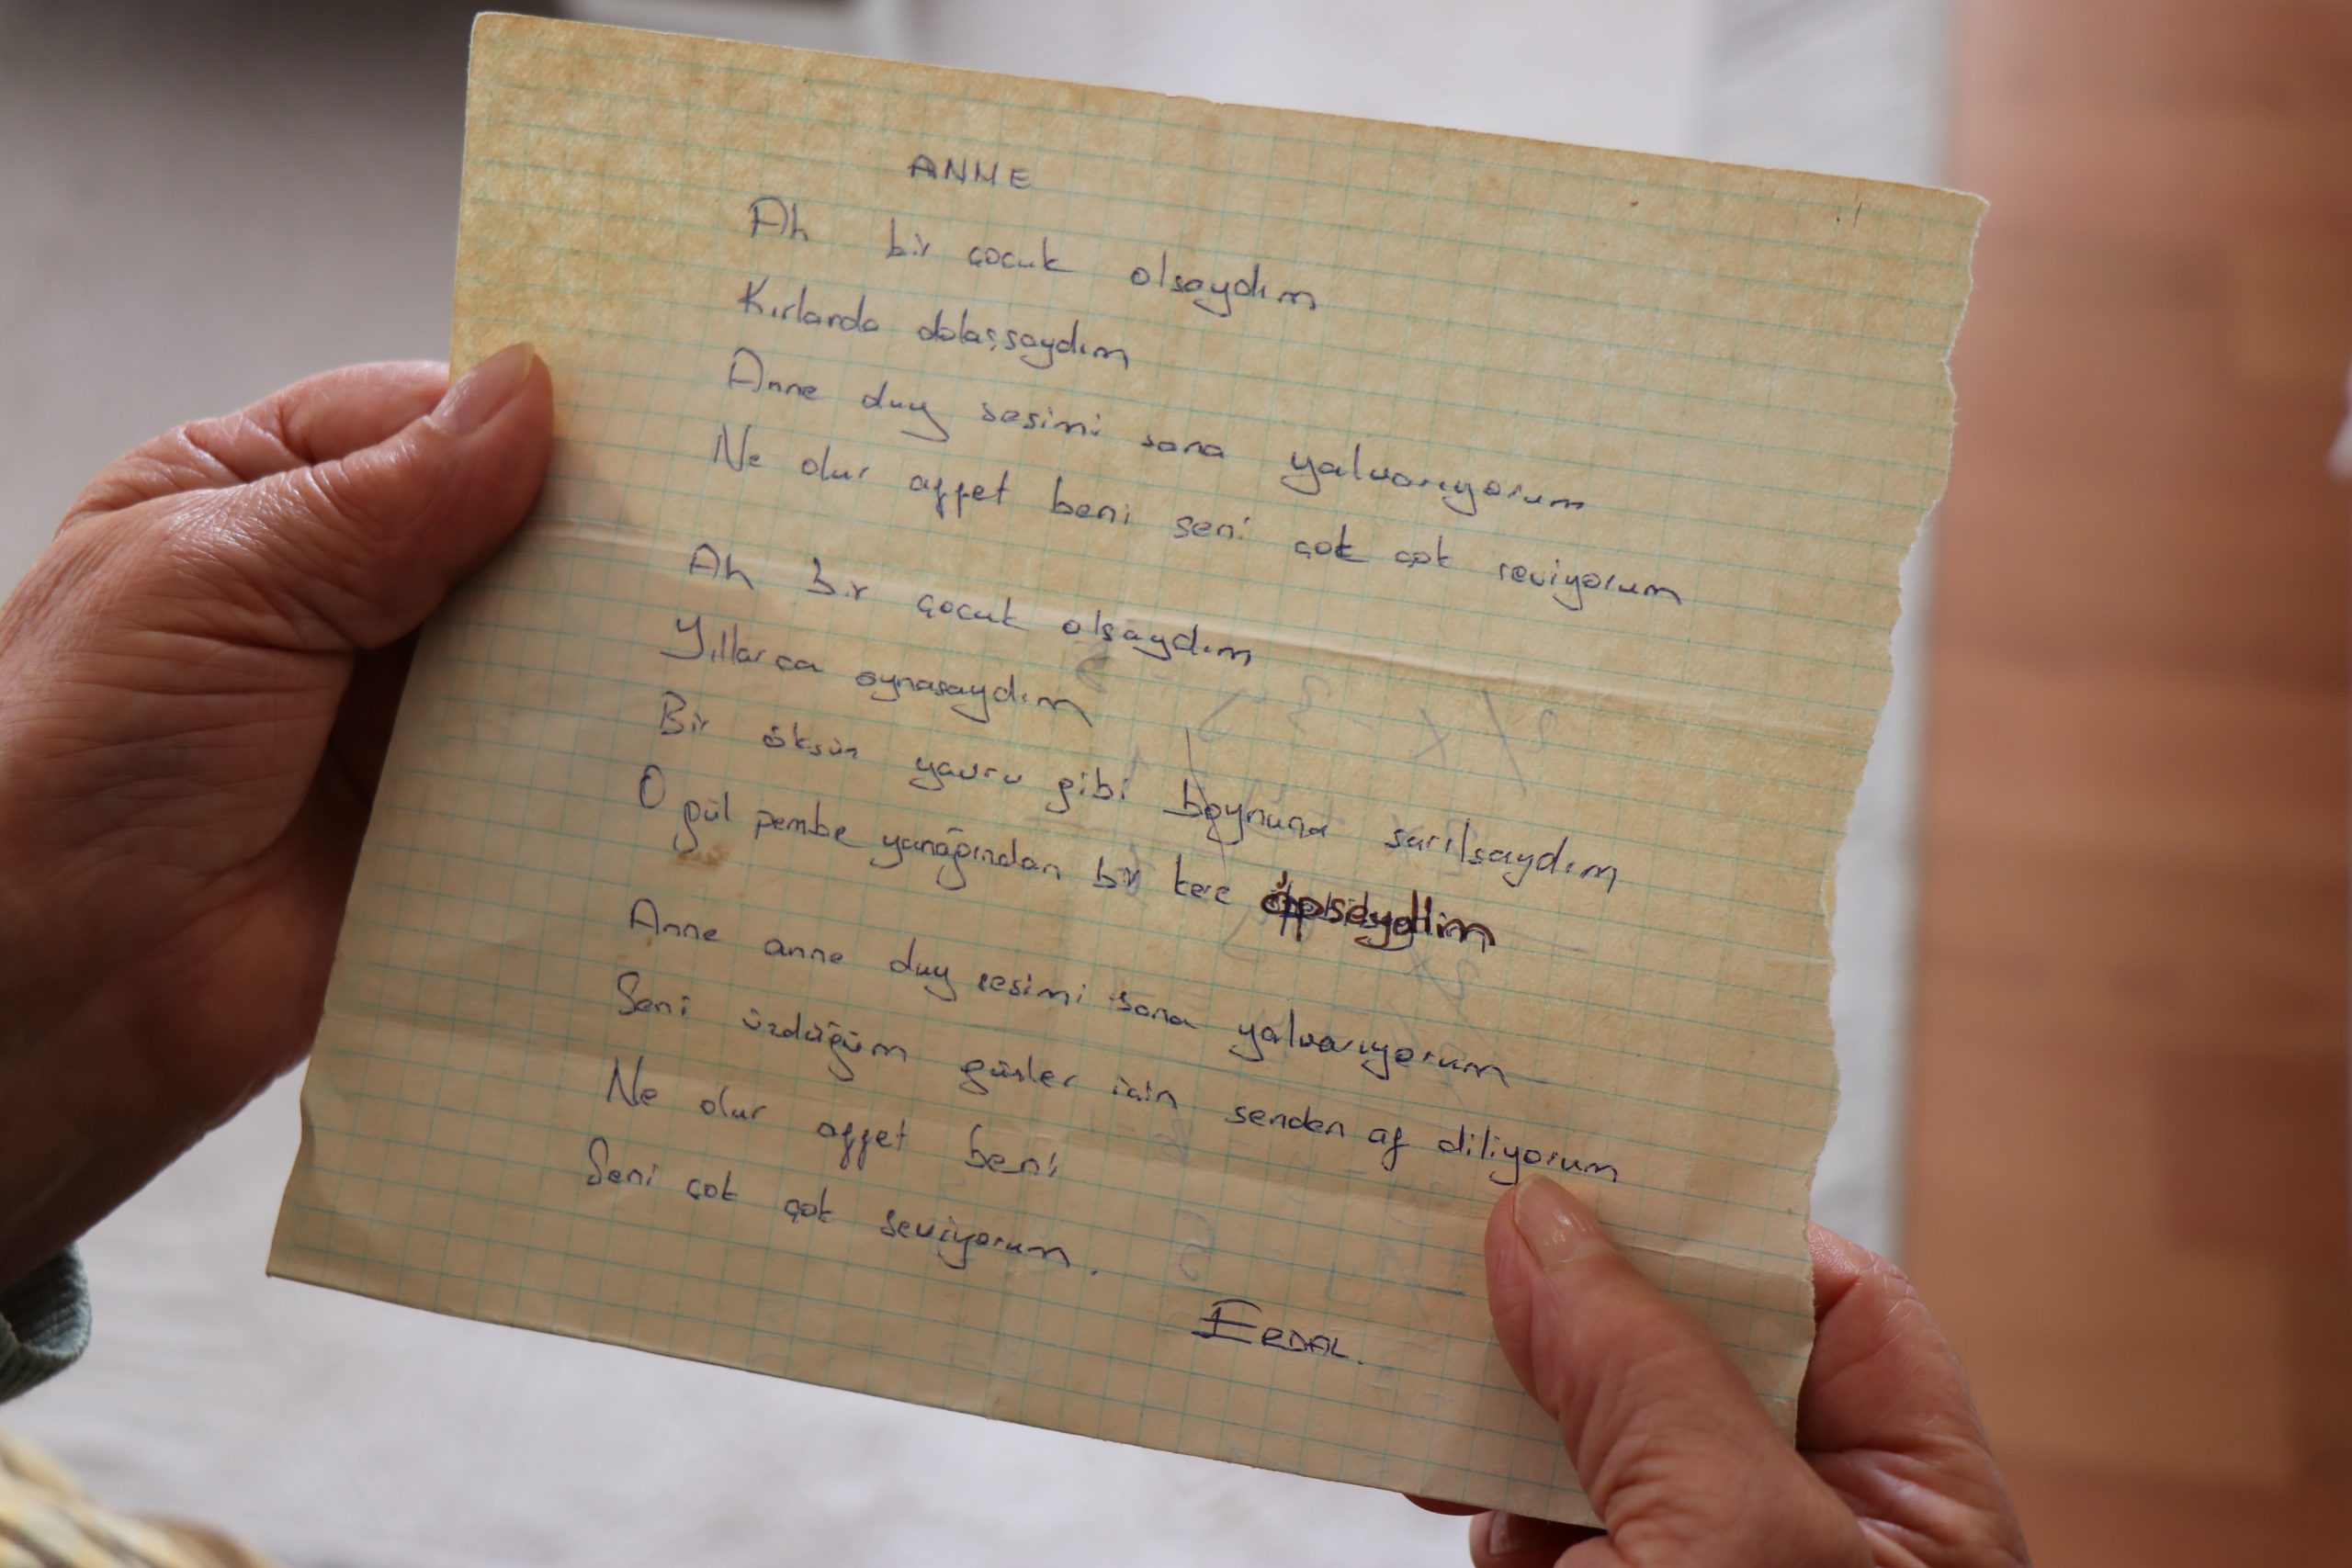 ANNE
Ah bir çocuk olsaydım
Kırlarda dolaşsaydım
Anne duy sesimi sana yalvarıyorum
Ne olur affet beni seni çok çok seviyorum
Ah bir çocuk olsaydım
Yıllarca oynasaydım
Bir öksün yavru gibi boynuna sarılsaydım
O gül pembe yanağından bir kere öpseydim
Anne anne duy sesimi sana yalvarıyorum
Seni üzdüğüm günler için senden af diliyorum
Ne olur affet beni
Seni çok çok seviyorum.
ERDAL.